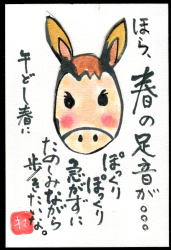 ほら、
春の足音が。。。
ぽっくり
ぽっくり
急がずに
たのしみながら
歩きたいな。
午どし春に